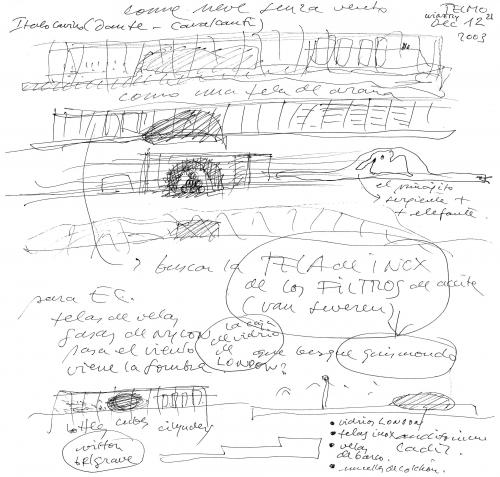 come neve senza vento
Italo Calvino (Dante - Cavalcanti)
TECMO
DEC 12
2003
como una tela de araña
el principito
serpiente +
+ elefante.
buscar la TELA de iNOX
de LOS FILTROS de aceite
(van severen)
para EC.
telas de velas
gasas de NYLON
pasa el viento
viene la sombra
la caja
de vidrio
de
LONDON?
que busque guismondo
bottles cubes cilynders
wilton
belgrave
• vidrio LONDON
• telas inox
• velas
de barco.
• muelles de colchón.
cadiz.